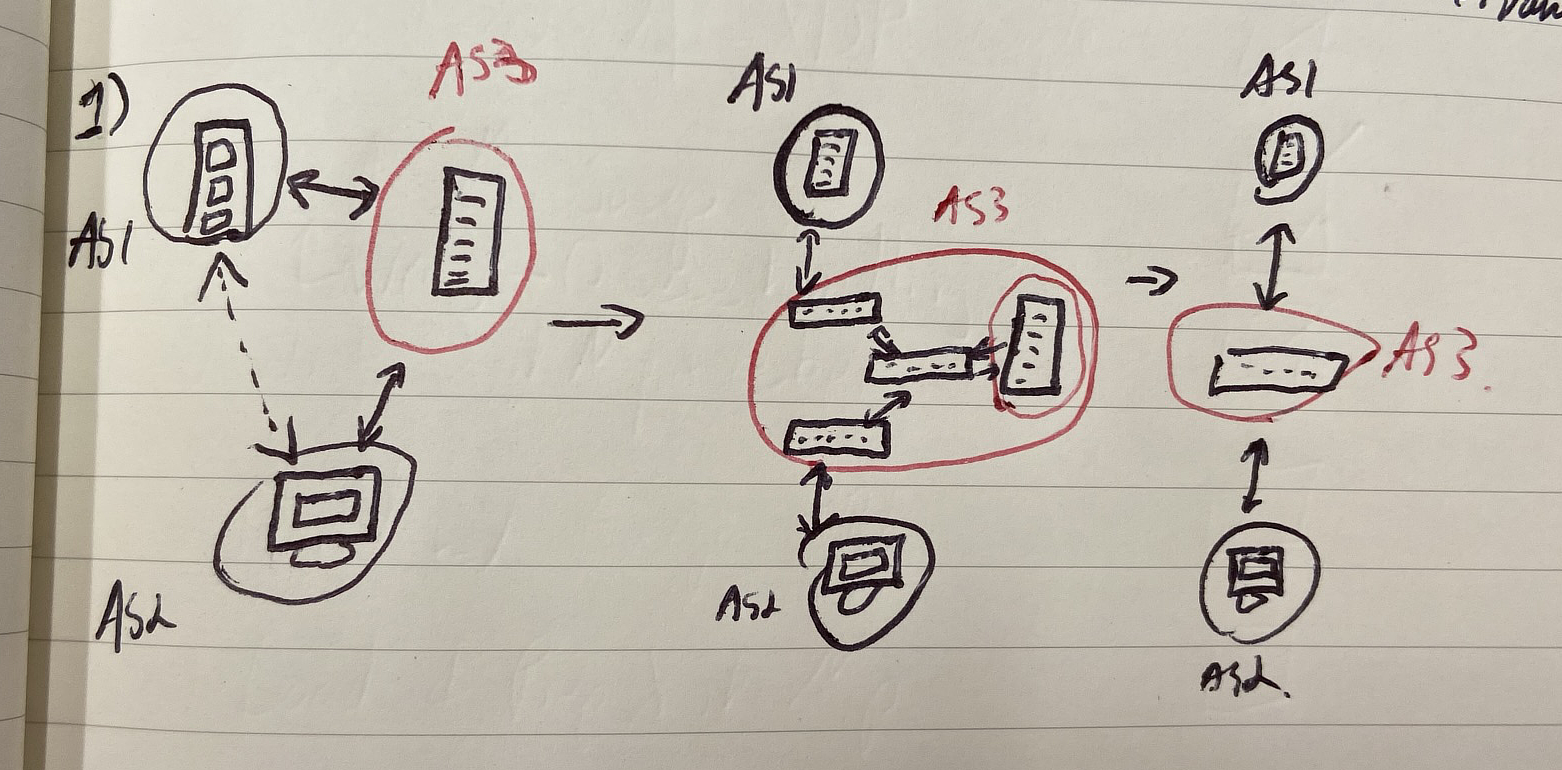 1)
AS3
AS1
AS2
AS1
AS3
AS2
AS1
AS3.
AS2.